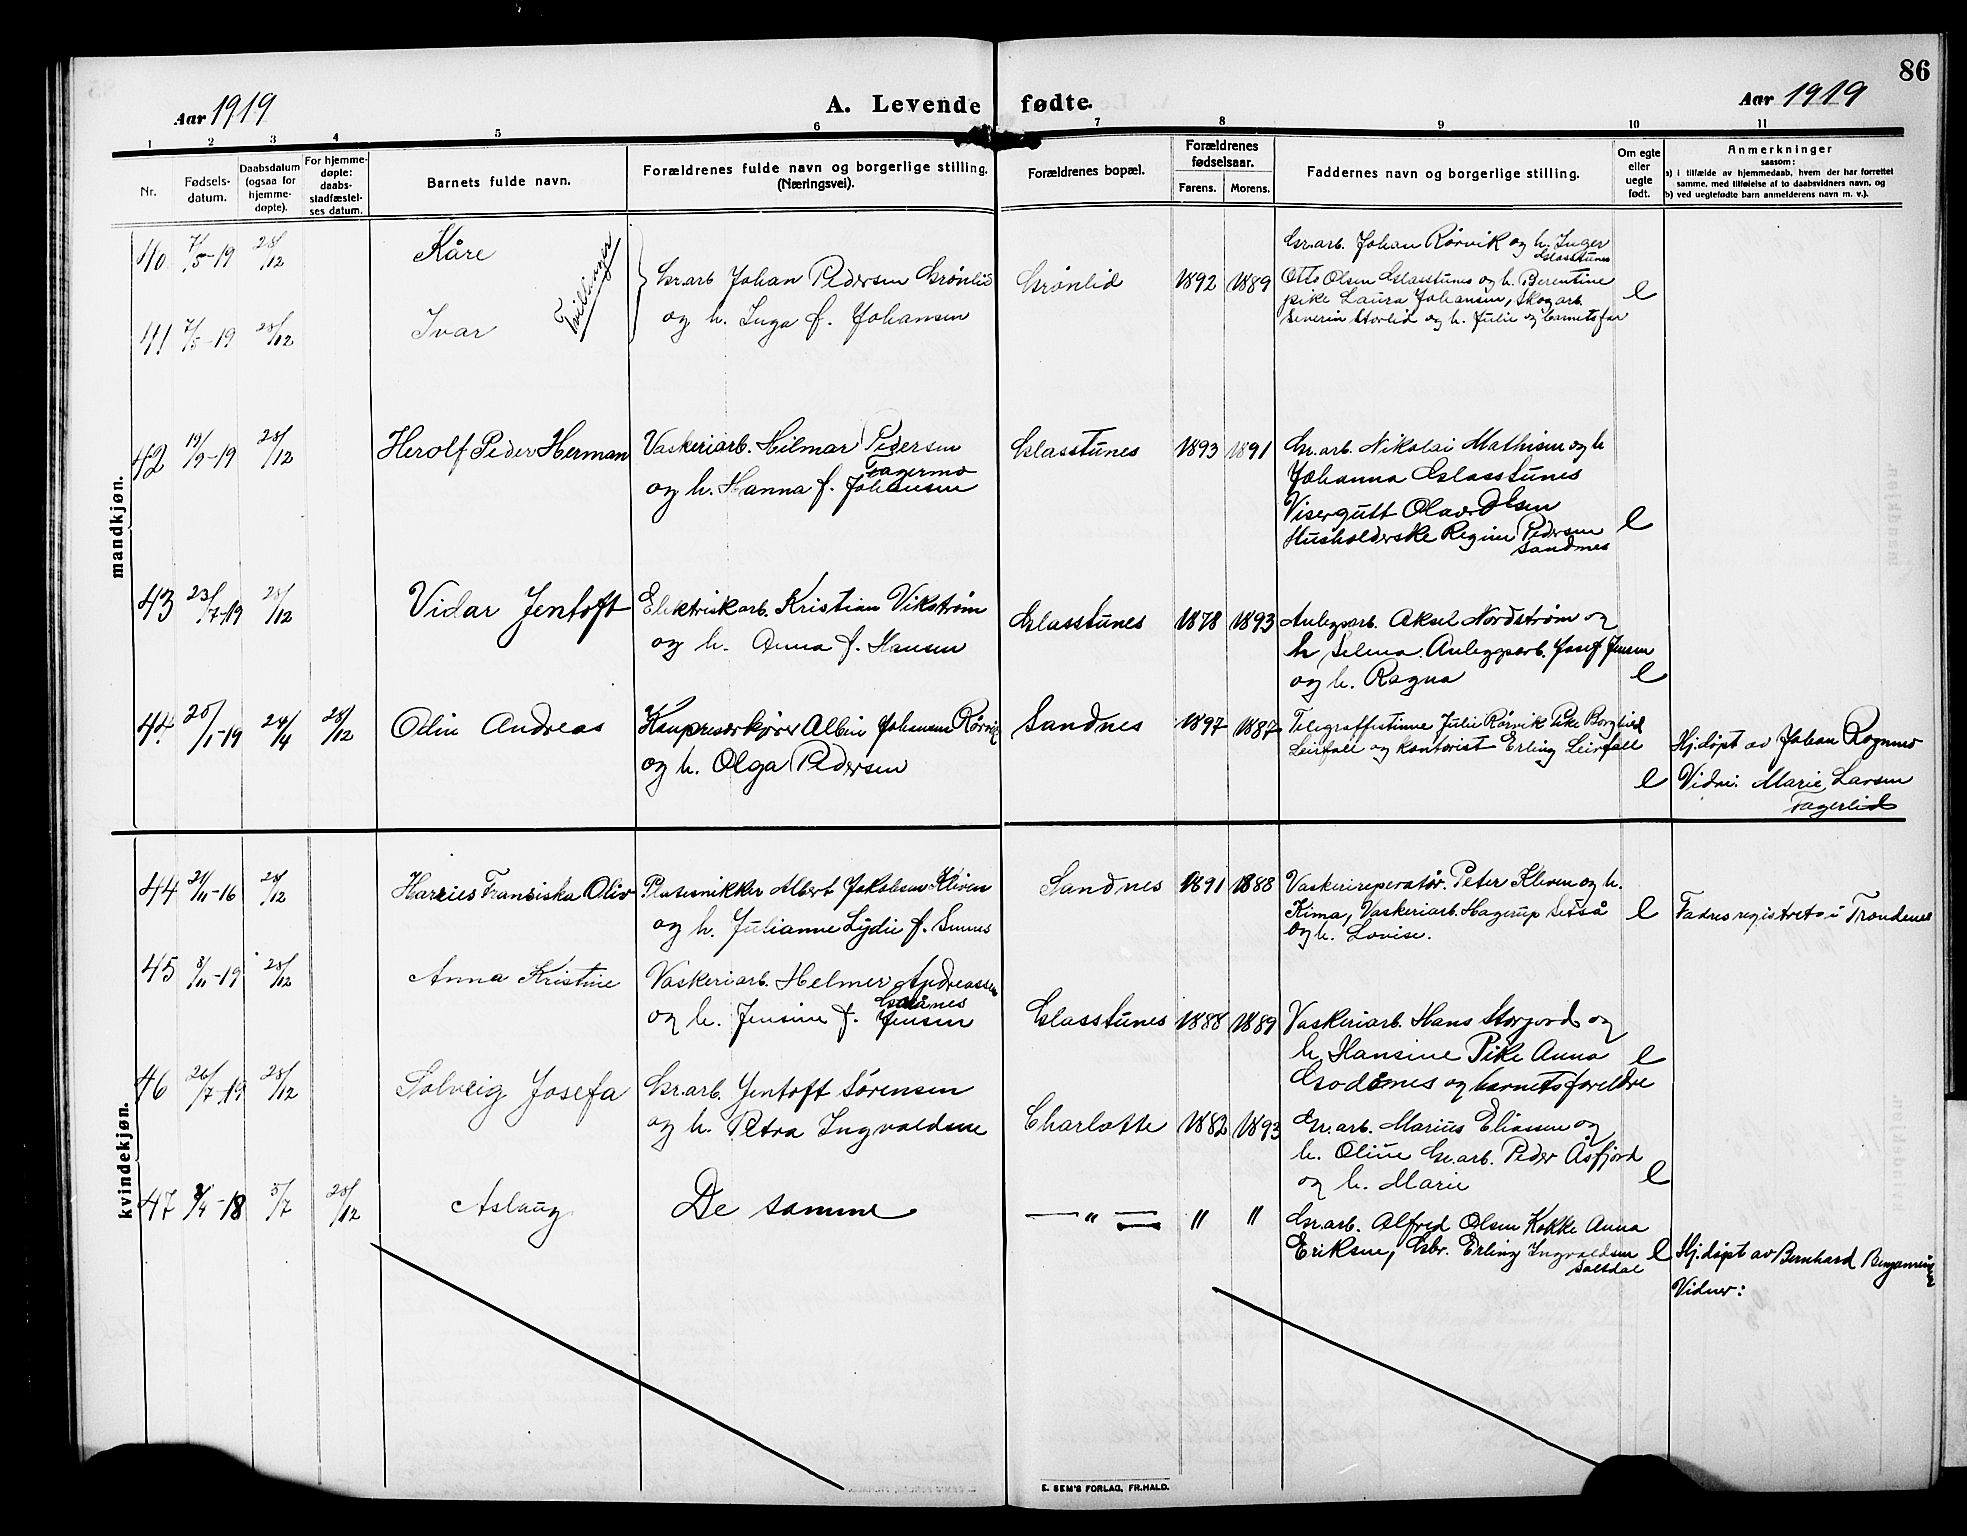 86
Aar 1919
A. Levende fødte.
Aar 1919
1 2 3 4 5 6 7 8 9 10 11
Nr.
Fødsels-
datum.
Daabsdatum
(ogsaa for
hjemme-
døpte).
For hjemme-
døpte:
daabs-
stadfæstel-
ses datum.
Barnets fulde navn.
Forældrenes fulde navn og borgerlige stilling.
(Næringsvei).
Forældrenes bopæl.
Forældrenes
fødselsaar.
Farens. Morens.
Faddernes navn og borgerlige stilling.
Om egte
eller
uegte
født.
Anmerkninger
saasom:
a) i tilfælde av hjemmedaab, hvem der har forrettet
samme, med tilføielse af to daabsvidners navn, og
b) ved uegtefødte barn anmelderens navn m. v.).
mandkjøn.
40 7/5-19 28/12 Kåre
Tvillinger
Gr.arb Johan Pedersen Grønlid
og h. Inga f. Johansen
Grønlid 1892 1889
Gr.arb. Johan Rørvik og h. Inger
Glasstunes
Otto Olsen Glasstunes og h. Berentine
pike Laura Johansen, Skogarb.
Severin Storlid og h. Julie og barnets far
e
41 7/5-19 28/12 Ivar
42 19/9-19 28/12 Herolf Peder Herman
Vaskeriarb. Hilmar Pedersen
Fagermo
og h. Hanna f. Johansen
Glasstunes 1893 1891
Gr.arb. Nikolai Mathisen og h
Johanna Glasstunes
Visergutt Olaer Olsen
Husholderske Regine Pedersen
Sandnes
e
43 23/7-19 28/12 Vidar Jentoft
Elektriskarb. Kristian Vikstrøm
og h. Anna f. Hansen
Glasstunes 1878 1893
Anleggarb. Aksel Nordstrøm og
h Selma. Anleggarb. Josef Jensen
og h. Ragna
e
44. 20/1-19 24/4 28/12 Odin Andreas
Kompresørkjører Albin Johansen Rørvik
og h. Olga Pedersen
Sandnes 1897 1887
Telegraffistinne Julie Rørvik Pike Borghild
Leirfall og kontorist Erling Leirfall
e
Hj.døpt av Johan Rognmo
Vidne: Marie Larsen
Fagerlid
kvindekjøn.
44 21/11-16 28/12 Harries Franziska Oliv
Platesnikker Albert Jakobsen Kleven
og h. Julianne Lydie f. Sennes
Sandnes 1891 1888
Vaskerireperatør. Peter Kleven og h.
Kima, Vaskeriarb. Hagerup Setså
og h. Lovise.
e
Fødresregistrets i Trondenes
45 3/11-19 28/12 Anna Kristine
Vaskeriarb. Helmer Andreassen
Godånes
og h. Jensine f. Jensen
Glasstunes 1888 1889
Vaskeriarb. Hans Storjord og
h Hansine Pike Anna
Godånes og barnets foreldre
e
46 26/7-19 28/12 Solveig Josefa
Gr.arb. Jentoft Sørensen
og h. Petra Ingvaldsen
Charlotte 1882 1893
Gr.arb. Marius Eliassen og
h. Oline Gr.arb. Peder Åsfjord
og h. Marie
e
47 3/4-18 5/7 28/12 Aslaug
De samme
— " — " "
Gr.arb. Alfred Olsen Kokke Anna
Eriksen, Gbr. Erling Ingvaldsen
Saltdal
e
Hj.døpt av Bernhard Benjaminsen
Vidner:
E. SEM'S FORLAG, FR.HALD.